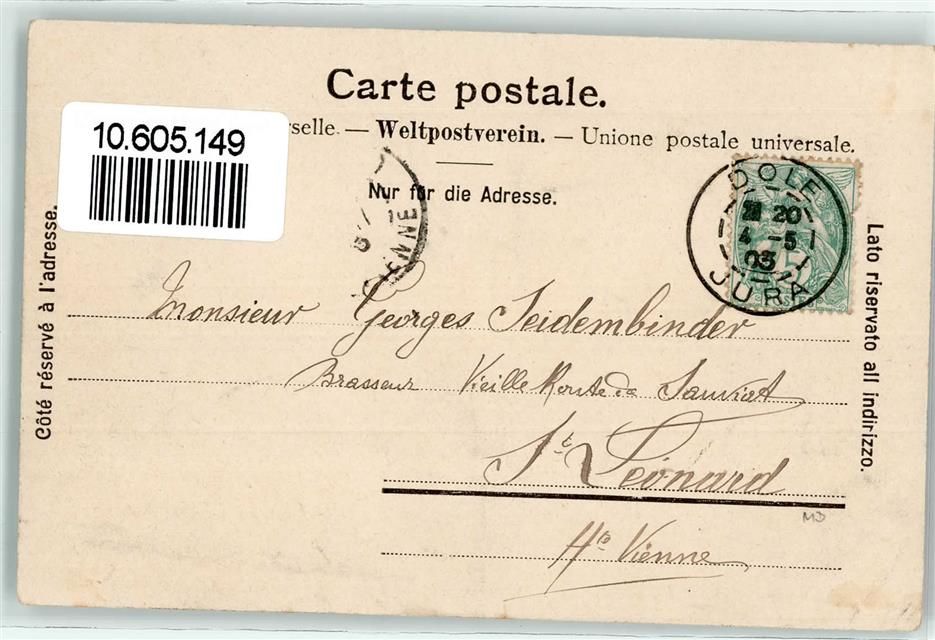 Carte postale.
10.605.149
rselle. — Weltpostverein. — Unione postale universale.
Nur für die Adresse.
DOLE
20
4 -5
03
JURA
IENNE
Côté réservé à l'adresse.
Lato riservato all indirizzo.
Monsieur Georges Seidembinder
Brasseur Vieille Route de Sauviat
St Léonard
Hte Vienne
MD